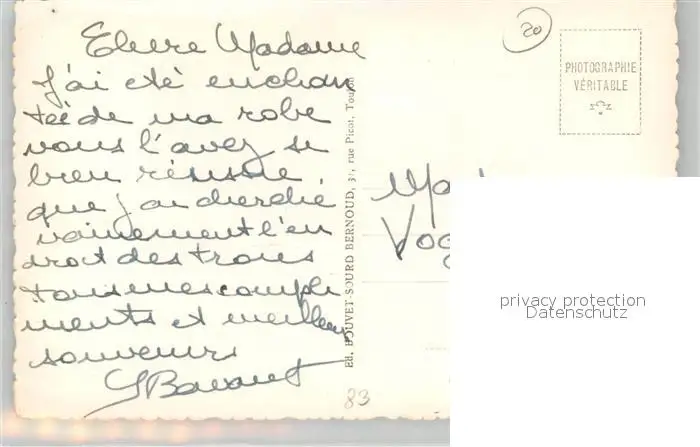 Chere Madame
J'ai été enchan
teé de ma robe
vous l'avez si
bien réussie
que j'ai cherché
vainement l'en
droit des trous
tous mes compli
ments et meilleurs
souvenirs
Ed. BOUVET-SOURD BERNOUD, rue Picot, Toulon
20
PHOTOGRAPHIE
VÉRITABLE
83
privacy protection
Datenschutz